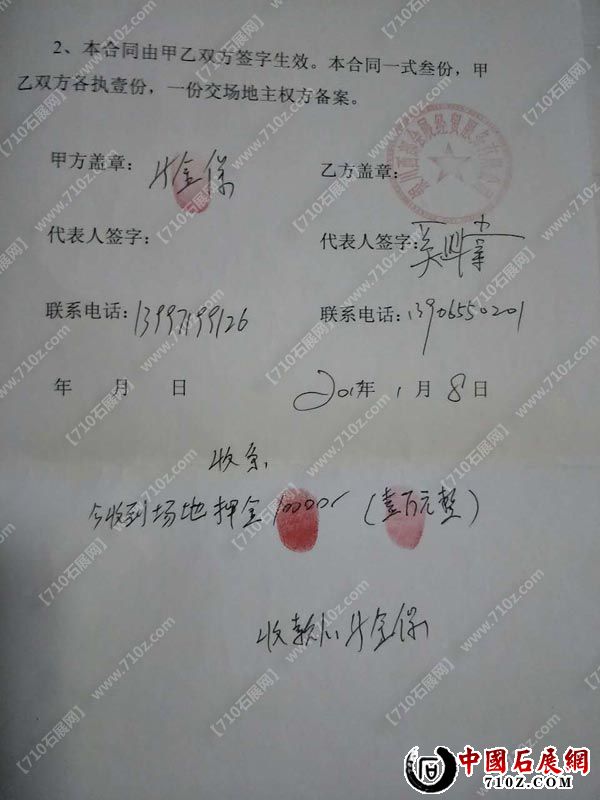 2、本合同由甲乙双方签字生效。本合同一式叁份，甲
乙双方各执壹份，一份交场地主权方备案。
甲方盖章： 金保
乙方盖章：
代表人签字：
代表人签字：吴
联系电话：13997199126
联系电话：13906550201
年 月 日
201 年 1 月 8 日
收条：
今收到场地押金10000 （壹万元整）
收款人：金保
【710石展网】 www.710z.com
中國石展網
710Z.COM